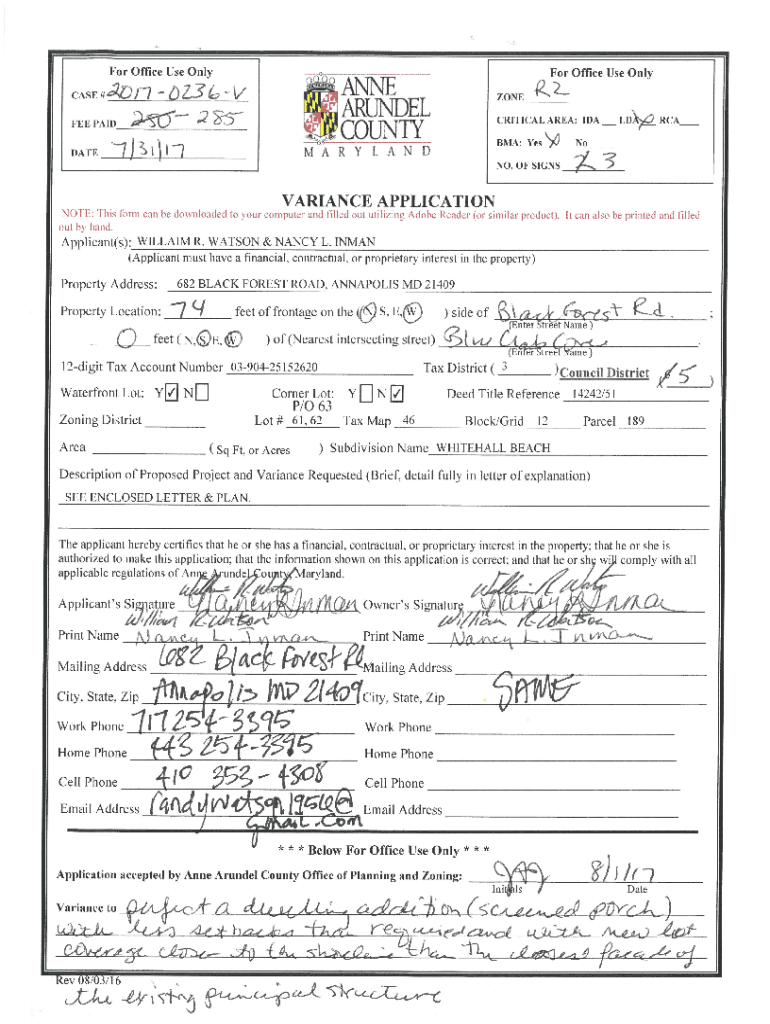 For Office Use Only
CASE # 2017-0236-V
FEE PAID 250- 285
DATE 7/31/17
ANNE
ARUNDEL
COUNTY
MARYLAND
For Office Use Only
ZONE R2
CRITICAL AREA: IDA LDA X RCA
BMA: Yes X No
NO. OF SIGNS 3
VARIANCE APPLICATION
NOTE: This form can be downloaded to your computer and filled out utilizing Adobe Reader (or similar product). It can also be printed and filled
out by hand.
Applicant(s): WILLAIM R. WATSON & NANCY L. INMAN
(Applicant must have a financial, contractual, or proprietary interest in the property)
Property Address: 682 BLACK FOREST ROAD, ANNAPOLIS MD 21409
Property Location: 74 feet of frontage on the (N, S, E, W) side of Black Forest Rd. ;
(Enter Street Name)
0 feet (N, S, E, W) of (Nearest intersecting street) Blue Crab Cove .
(Enter Street Name)
12-digit Tax Account Number 03-904-25152620 Tax District ( 3 ) Council District ( 5 )
Waterfront Lot: Y ☑ N ☐ Corner Lot: Y ☐ N ☑ Deed Title Reference 14242/51
P/O 63
Zoning District Lot # 61, 62 Tax Map 46 Block/Grid 12 Parcel 189
Area (Sq Ft. or Acres ) Subdivision Name WHITEHALL BEACH
Description of Proposed Project and Variance Requested (Brief, detail fully in letter of explanation)
SEE ENCLOSED LETTER & PLAN.
The applicant hereby certifies that he or she has a financial, contractual, or proprietary interest in the property; that he or she is
authorized to make this application; that the information shown on this application is correct; and that he or she will comply with all
applicable regulations of Anne Arundel County, Maryland.
Applicant's Signature William R Watson Nancy L Inman Owner's Signature William R Watson Nancy L Inman
William R. Watson William R. Watson
Print Name Nancy L. Inman Print Name Nancy L. Inman
Mailing Address 682 Black Forest Rd Mailing Address
City, State, Zip Annapolis MD 21409 City, State, Zip SAME
Work Phone 717 254-3395 Work Phone
Home Phone 443 254-3395 Home Phone
Cell Phone 410 353-4308 Cell Phone
Email Address randywatson1956@ Email Address
gmail.com
* * * Below For Office Use Only * * *
Application accepted by Anne Arundel County Office of Planning and Zoning: 8/1/17
Initials Date
Variance to perfect a dwelling addition (screened porch)
with less setbacks than required and with new lot
coverage closer to the shoreline than the closest facade of
Rev 08/03/16
the existing principal structure